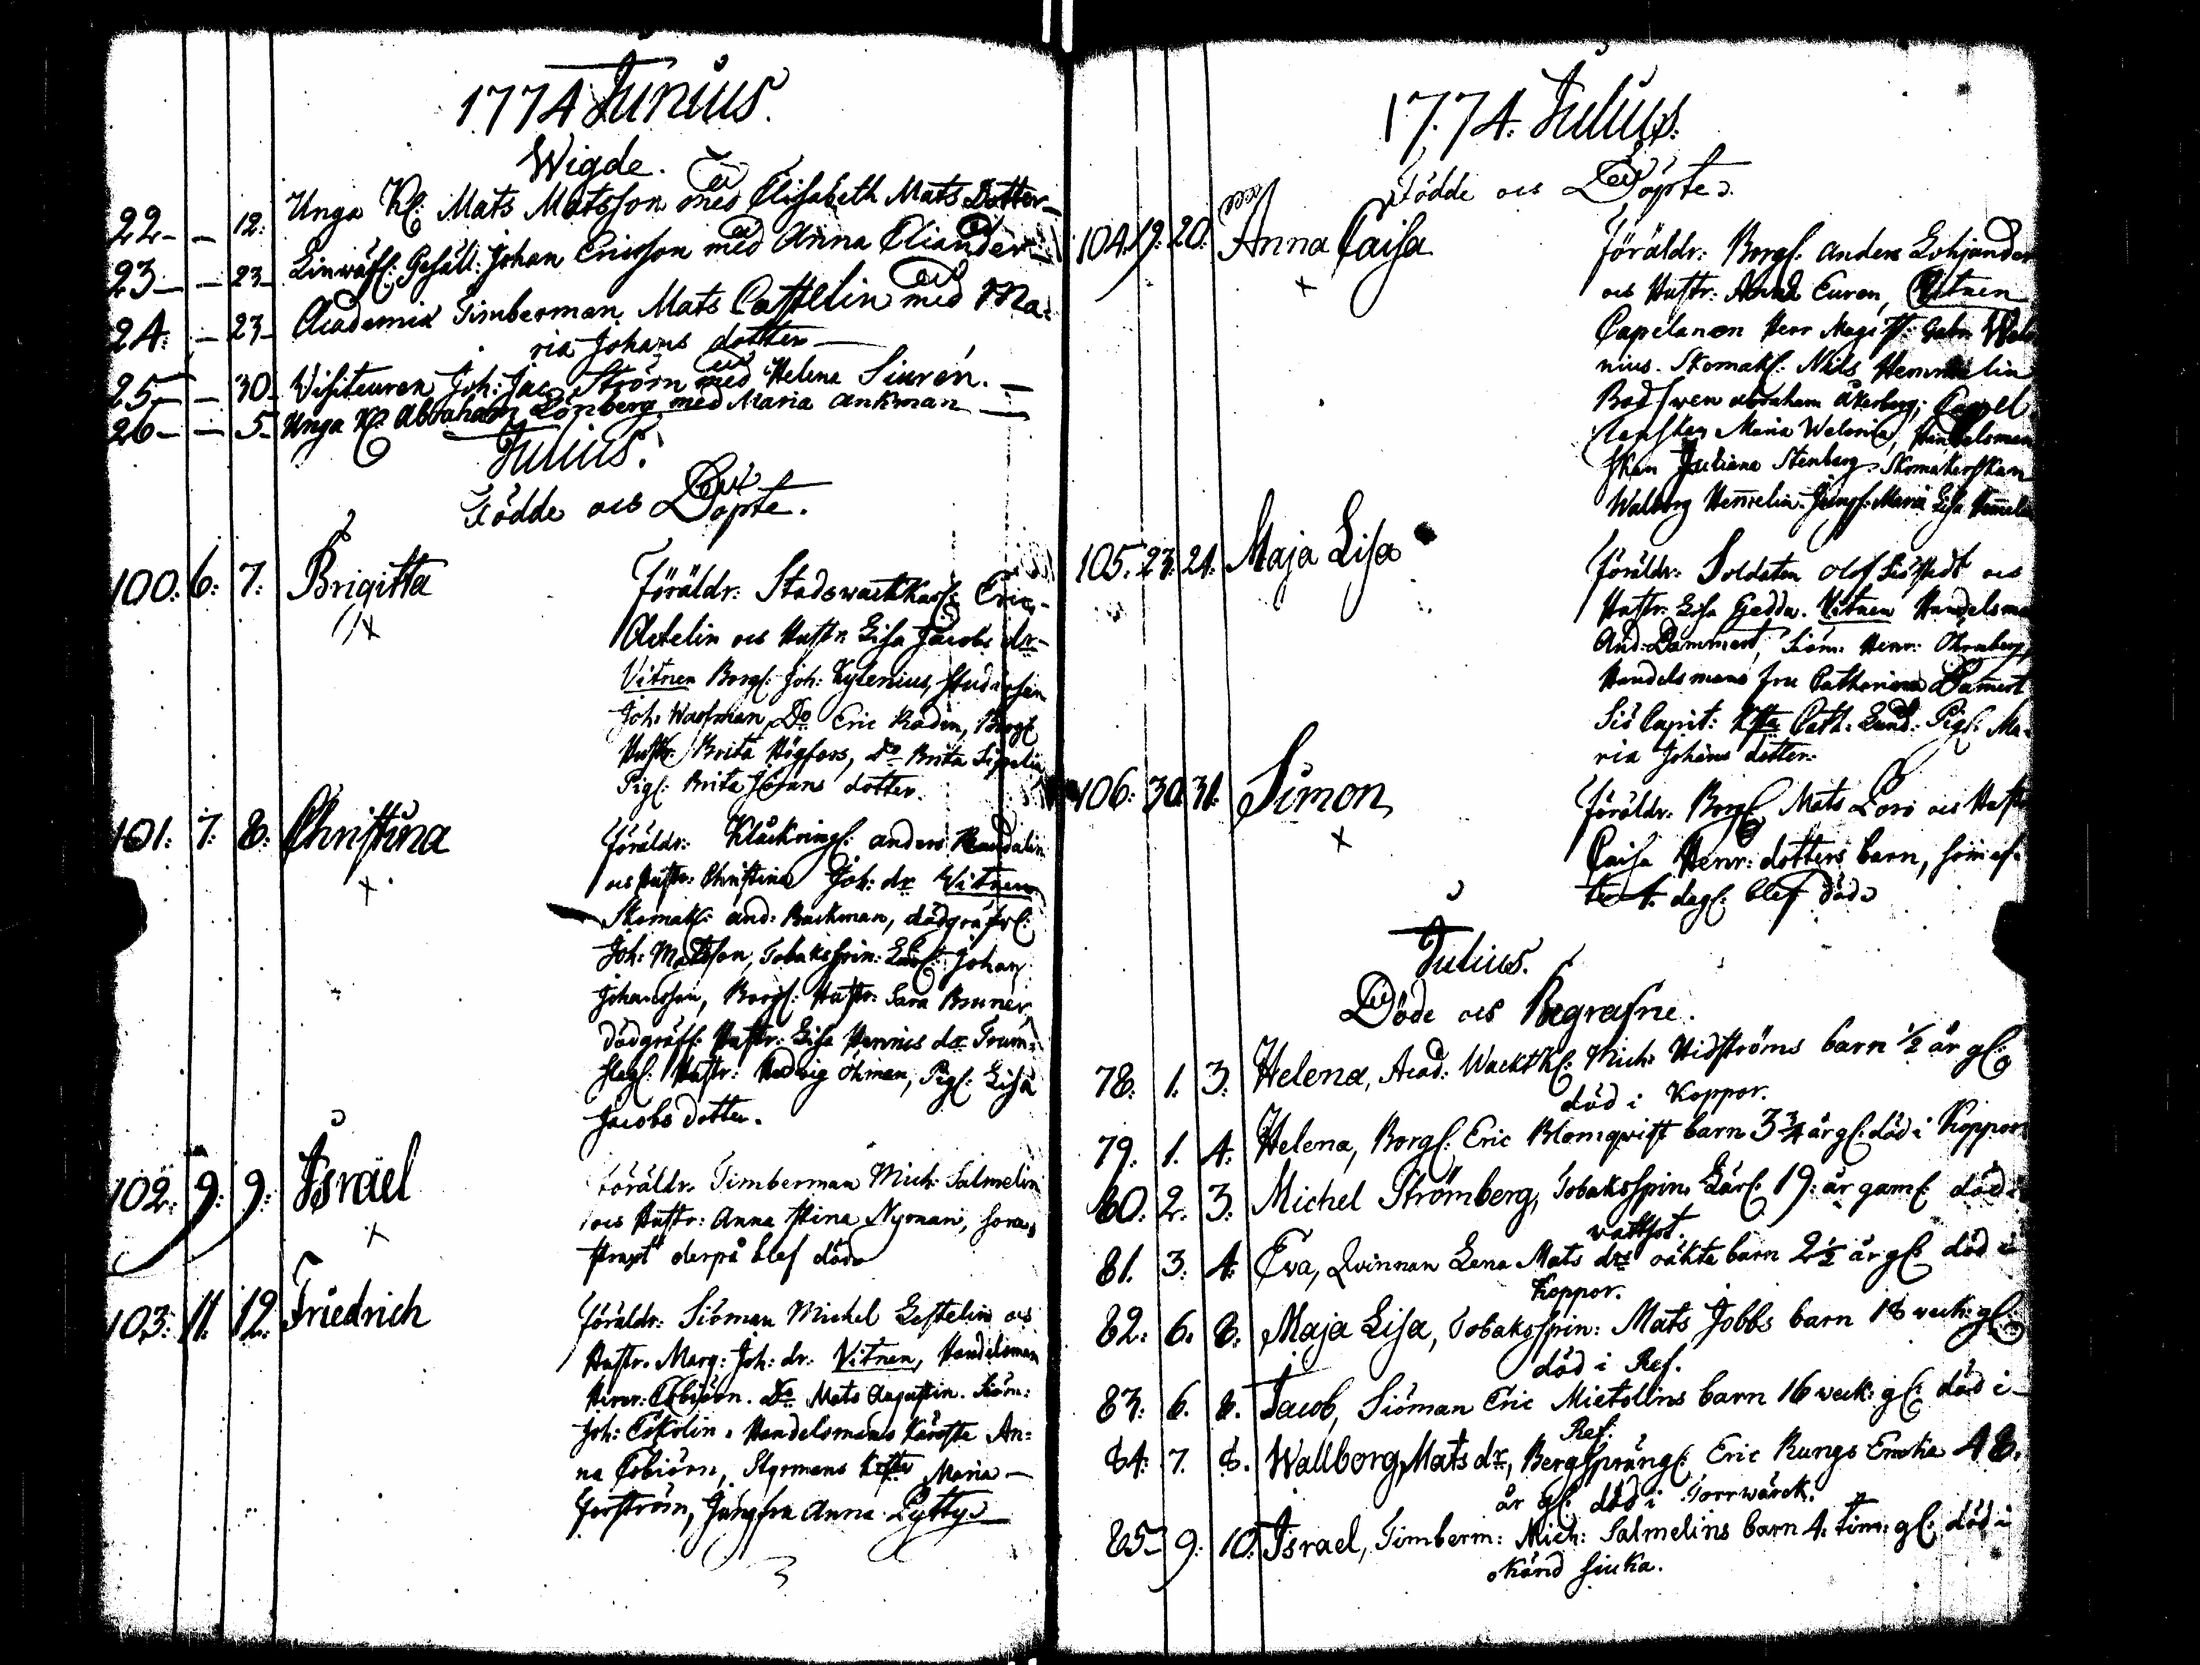 1774 Junius.
Wigde.
22 — — 12: Unga K: Mats Matsson med Elisabeth Mats Dotter —
23 — — 23 — Linwäf: Gesäll: Johan Ericsson med Anna Eliander
24. — 23 — Academiæ Timberman Mats Castelin med Ma=
ria Johans dotter —
25 — — 30 Visiteuren Joh: Jac: Ström med Helena Siurén. —
26 — — 5 — Unga K: Abraham Lönberg med Maria Ankman —
Julius.
Födde och Döpte.
100: 6: 7: Brigitta
Föräldr: Stadswacktkarl: Eric
Actelin och Hustr: Lisa Jacobs dr
Vitnen Borg: Joh: Kylenius,
Joh: Do Eric Radin, Borg:
Hustr: Brita Högfors, Do Brita Sipelin
Pig: Brita Johans dotter.
101: 7: 8: Christina
Föräldr: Klåckring: Anders Randalin
och Hustr: Christina Joh: dr Vitnen
Skomak: And: Backman, dödgräfv:
Joh: Matsson, Tobaksspin: Lärl: Johan
Johansson, Borg: Hustr: Sara Bruner,
dödgräf: Hustr: Lisa Henrics dr Trum=
slag: Hustr: Hedvig Öhman, Pig: Lisa
Jacobs dotter.
102: 9: 9: Israel
Föräldr: Timberman Mich: Salmelin
och Hustr: Anna Stina Nyman, som
straxt derpå blef död
103: 11: 12: Friedrich
Föräldr: Siöman Michel Lestelin och
Hustr: Marg: Joh: dr: Vitnen, Handelsman
Henr: Esbiörn. Do Mats Augustin. Siöm:
Joh: Eskolin. Handelsmans Käreste An=
na Esbiörn, Styrmans Maria
Forström, Jungfru Anna Lytty
1774. Julius.
Födde och Döpte.
104. 19: 20: Anna Caisa
Föräldr: Borg: Anders Lohjander
och Hustr: Anna Euren, Vitnen
Capelanen Herr Magist: Gabr: Wele
nius. Skomak: Nils Hemmelin
Båd swen Abraham Åkerberg, Capel
Maria Welenia, Handelsman
skan Juliana Stenberg, Skomakerskan
Walborg Hemelin. Jungf: Maria Lisa Hemelin
105. 23: 24: Maja Lisa
Föräldr: Soldaten Olof Siöstedt och
Hustr: Lisa Gedda. Vitnen Handelsman
And: Dammert, Siöm: Henr: Öhrnberg,
Handelsmans fru Catharina Damert
Siö Capit: Cath: Lund. Pig: Ma=
ria Johans dotter.
106: 30: 31: Simon
Föräldr: Borg: Mats Loro och Hustr
Caisa Henr: dotters barn, som ef=
ter 1. dag: blef död
Julius.
Döde och Begrafne.
78: 1: 3: Helena, Acad: Wackt K: Mich: Hidströms barn ½ år g:
död i Koppor.
79. 1. 4: Helena, Borg: Eric Blomqvist barn 3¾ år g: död i Koppor
80. 2. 3: Michel Strömberg, Tobaksspin: Lärl: 19: år gaml: död i
wattsot.
81. 3: 4: Eva, Qvinnan Lena Mats drs oäkta barn 2½ år g: död i
Koppor.
82. 6. 8. Maja Lisa, Tobaksspin: Mats Jobbs barn 18 weck: g:
död i Ref.
83: 6. 8. Jacob, Siöman Eric Mietollins barn 16 weck: g: död i
Ref.
84: 7. 8. Wallborg Mats dr, Bergspräng: Eric Rungs Enckia 48.
år g: död i Torrwärck.
85 — 9: 10: Israel, Timberm: Mich: Salmelins barn 4. tim: g: död i
okänd siuka.